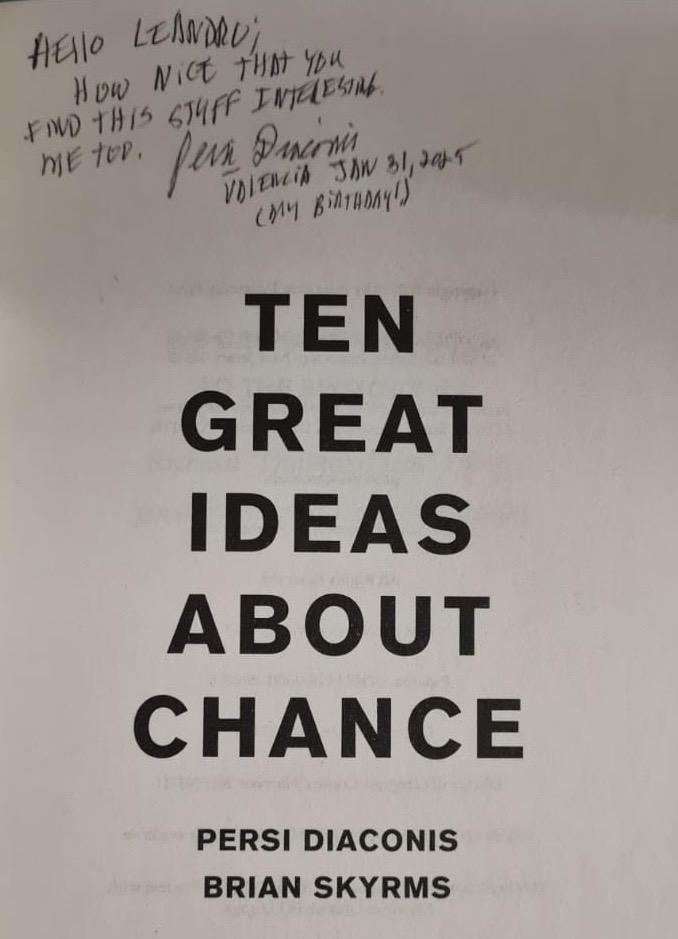 HELLO LEANDRO;
HOW NICE THAT YOU
FIND THIS STUFF INTERESTING.
ME TOO. Persi Diaconis
VALENCIA JAN 31, 2025
(MY BIRTHDAY!)
TEN
GREAT
IDEAS
ABOUT
CHANCE
PERSI DIACONIS
BRIAN SKYRMS